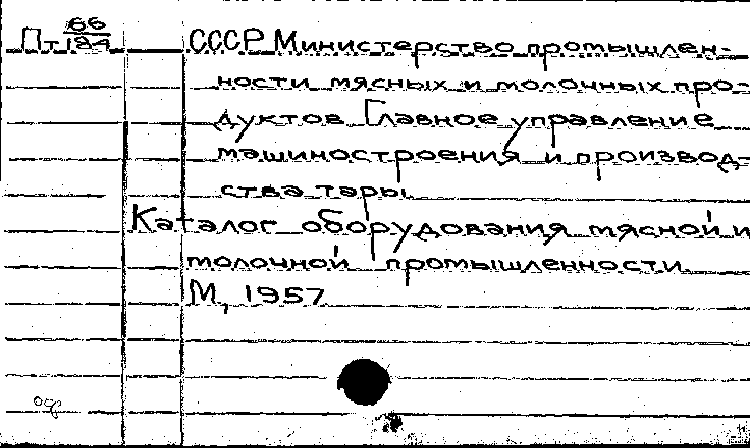 Пт 66/184 СССР Министерство промышлен-
ности мясных и молочных про-
дуктов Главное управление
машиностроения и производ-
ства тары.
Каталог оборудования мясной и
молочной промышленности
М, 1957